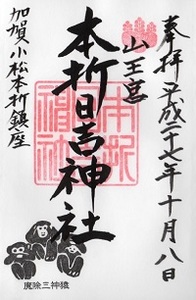 奉拝 平成二十七年十月八日
山王宮
本折日吉神社
加賀小松本折鎮座
魔除三神猿